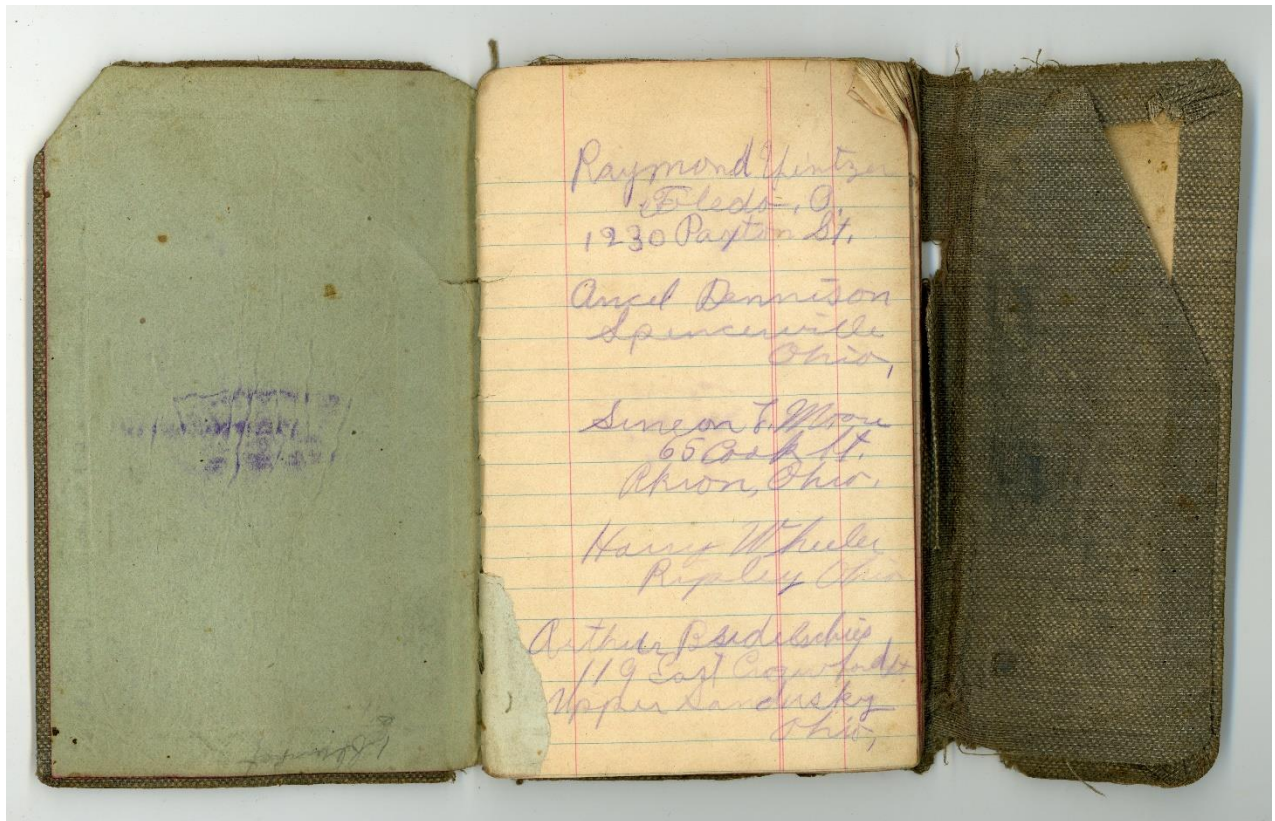 Raymond Yintzer
Toledo, O.
1230 Paxton St.
Ancel Dennison
Spencerville
Ohio,
Simeon F. Moore
65 Cook St.
Akron, Ohio.
Harry Wheeler
Ripley Ohio
Arthur B
119 East Crawford St.
Upper Sandusky
Ohio,